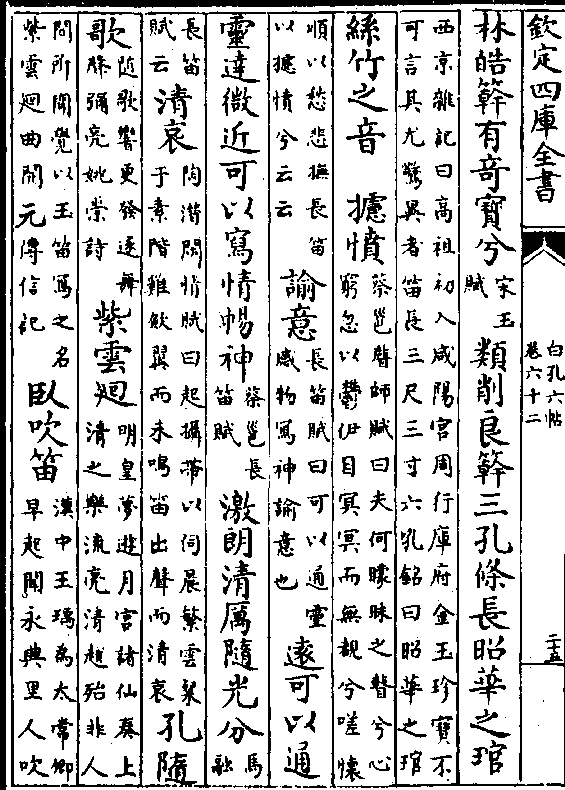 欽定四庫全書
白孔六帖
卷六十二
二十五
林皓簳有奇寶兮
宋玉
賦
類削良簳三孔條長昭華之琯
西京雜記曰高祖初入咸陽宮周行庫府金玉珍寶不
可言其尤驚異者笛長三尺三寸六孔銘曰昭華之琯
絲竹之音 攄憤
蔡邕瞽師賦曰夫何矇昧之瞽兮心
窮忽以鬱伊目冥冥而無覩兮嗟懷
順以愁悲撫長笛
以攄憤兮云云
諭意
長笛賦曰可以通靈
感物寫神諭意也
遠可以通
靈達微近可以寫情暢神
蔡邕長
笛賦
激朗清厲隨光分
馬
融
長笛
賦云
清哀
陶潛閑情賦曰起攝帶以伺晨繁雲粲
于素階雞歛翼而未鳴笛出聲而清哀
孔隨
歌
隨歌響更發逐舞
彌亮姚崇詩
紫雲廻
明皇夢遊月宮諸仙奏上
清之樂流亮清越殆非人
間所聞覺以玉笛寫之名
紫雲廻曲開元傳信記
臥吹笛
漢中王瑀為太常卿
早起聞永興里人吹